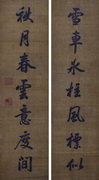 雪車冰柱風標似
秋月春雲意度間